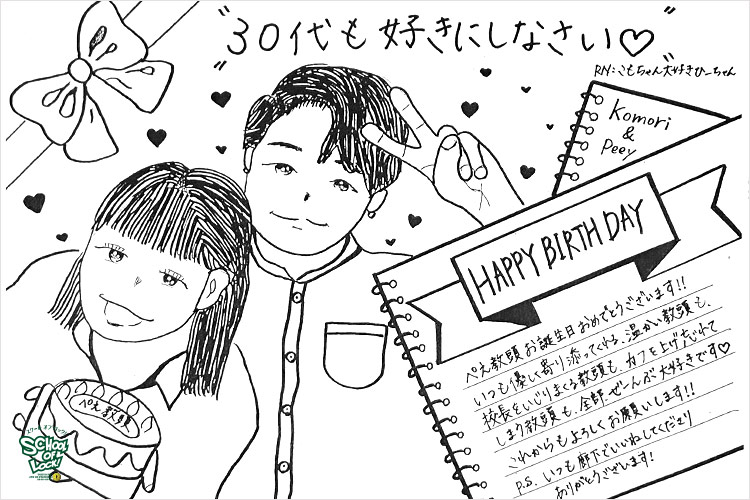 "30代も好きにしなさい♡"
RN:こもちゃん大好きひーちゃん
Komori
&
Peey
HAPPY BIRTH DAY
ぺえ教頭お誕生日おめでとうございます!!
いつも優しく寄り添ってくれる、温かい教頭も、
校長をいじりまくる教頭も、カフを上げ忘れて
しまう教頭も、全部ぜーんぶ大好きです♡
これからもよろしくお願いします!!
P.S. いつも廊下でいいねしてくださり
ありがとうございます!
ぺえ教頭
SCHOOL
OF
LOCK!